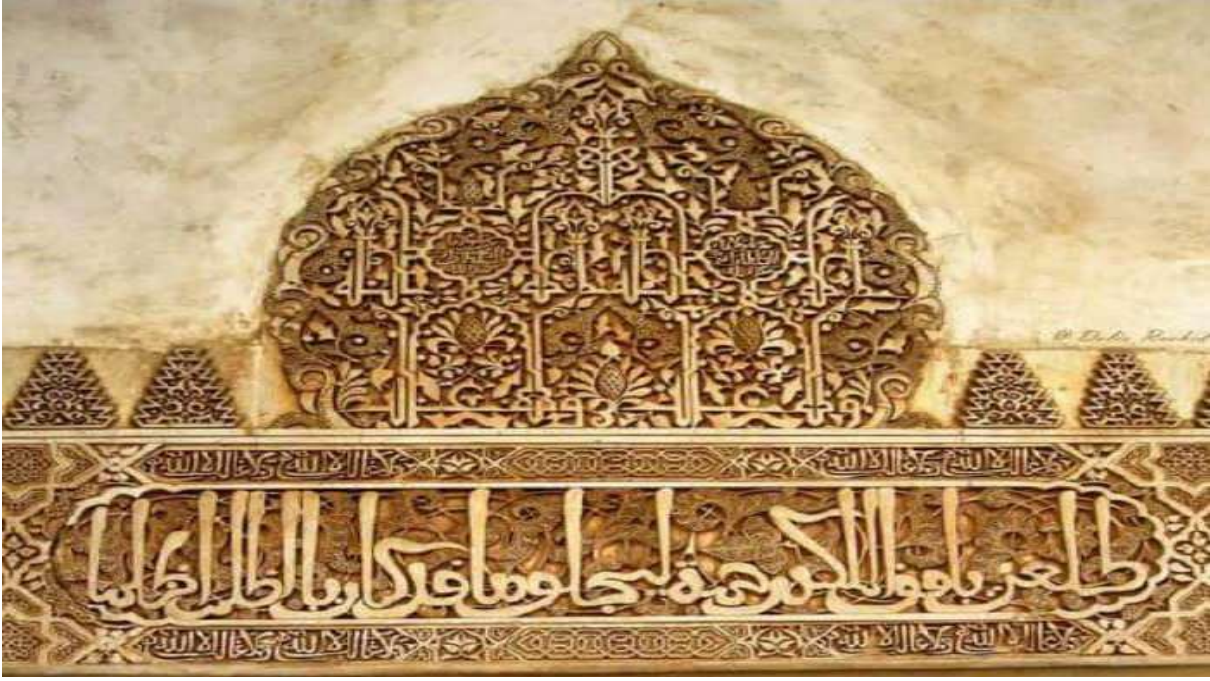 ولا غالب إلا الله ولا غالب إلا الله ولا غالب إلا الله ولا غالب إلا الله
طلعت بأفق الملك رحمة ليجلو ما قد كان بالظلم أظلما
ولا غالب إلا الله ولا غالب إلا الله ولا غالب إلا الله ولا غالب إلا الله